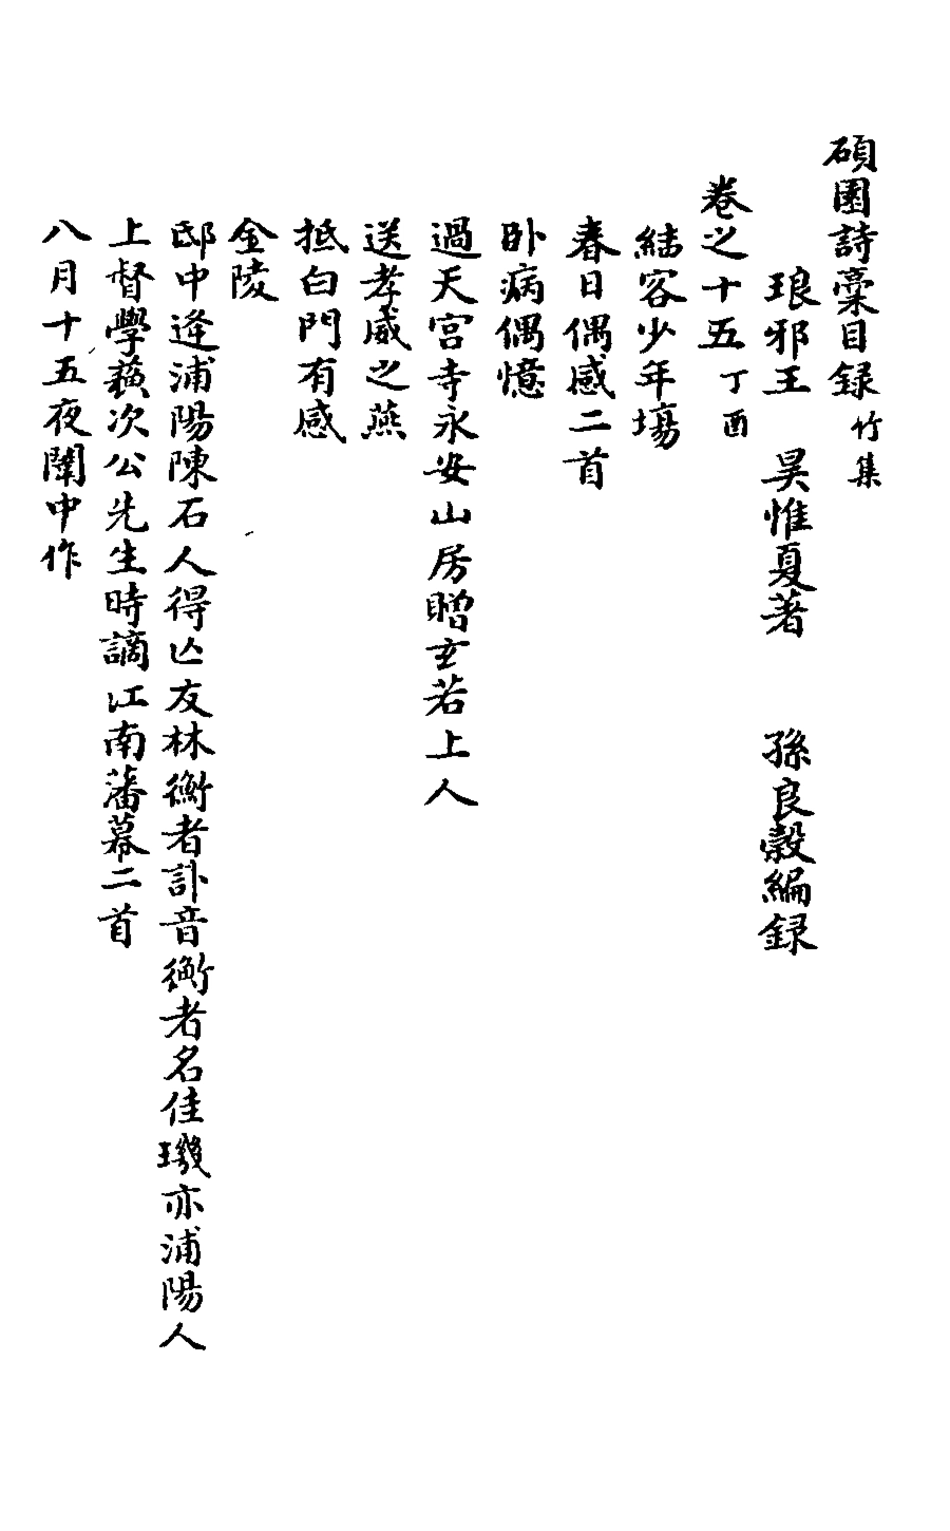 碩園詩稾目録 竹集
琅邪王 昊惟夏著 孫良穀編録
卷之十五 丁酉
結客少年塲
春日偶感二首
卧病偶憶
過天宫寺永安山房贈玄若上人
送孝威之燕
抵白門有感
金陵
邸中逢浦陽陳石人得亾友林衡者訃音衡者名佳璣亦浦陽人
上督學蘓次公先生時謫江南藩幕二首
八月十五夜闈中作